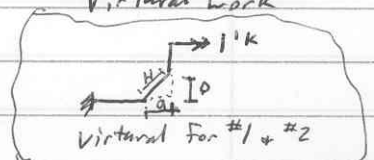 Virtural Work
1'k
H
D
a
Virtural for #1 & #2